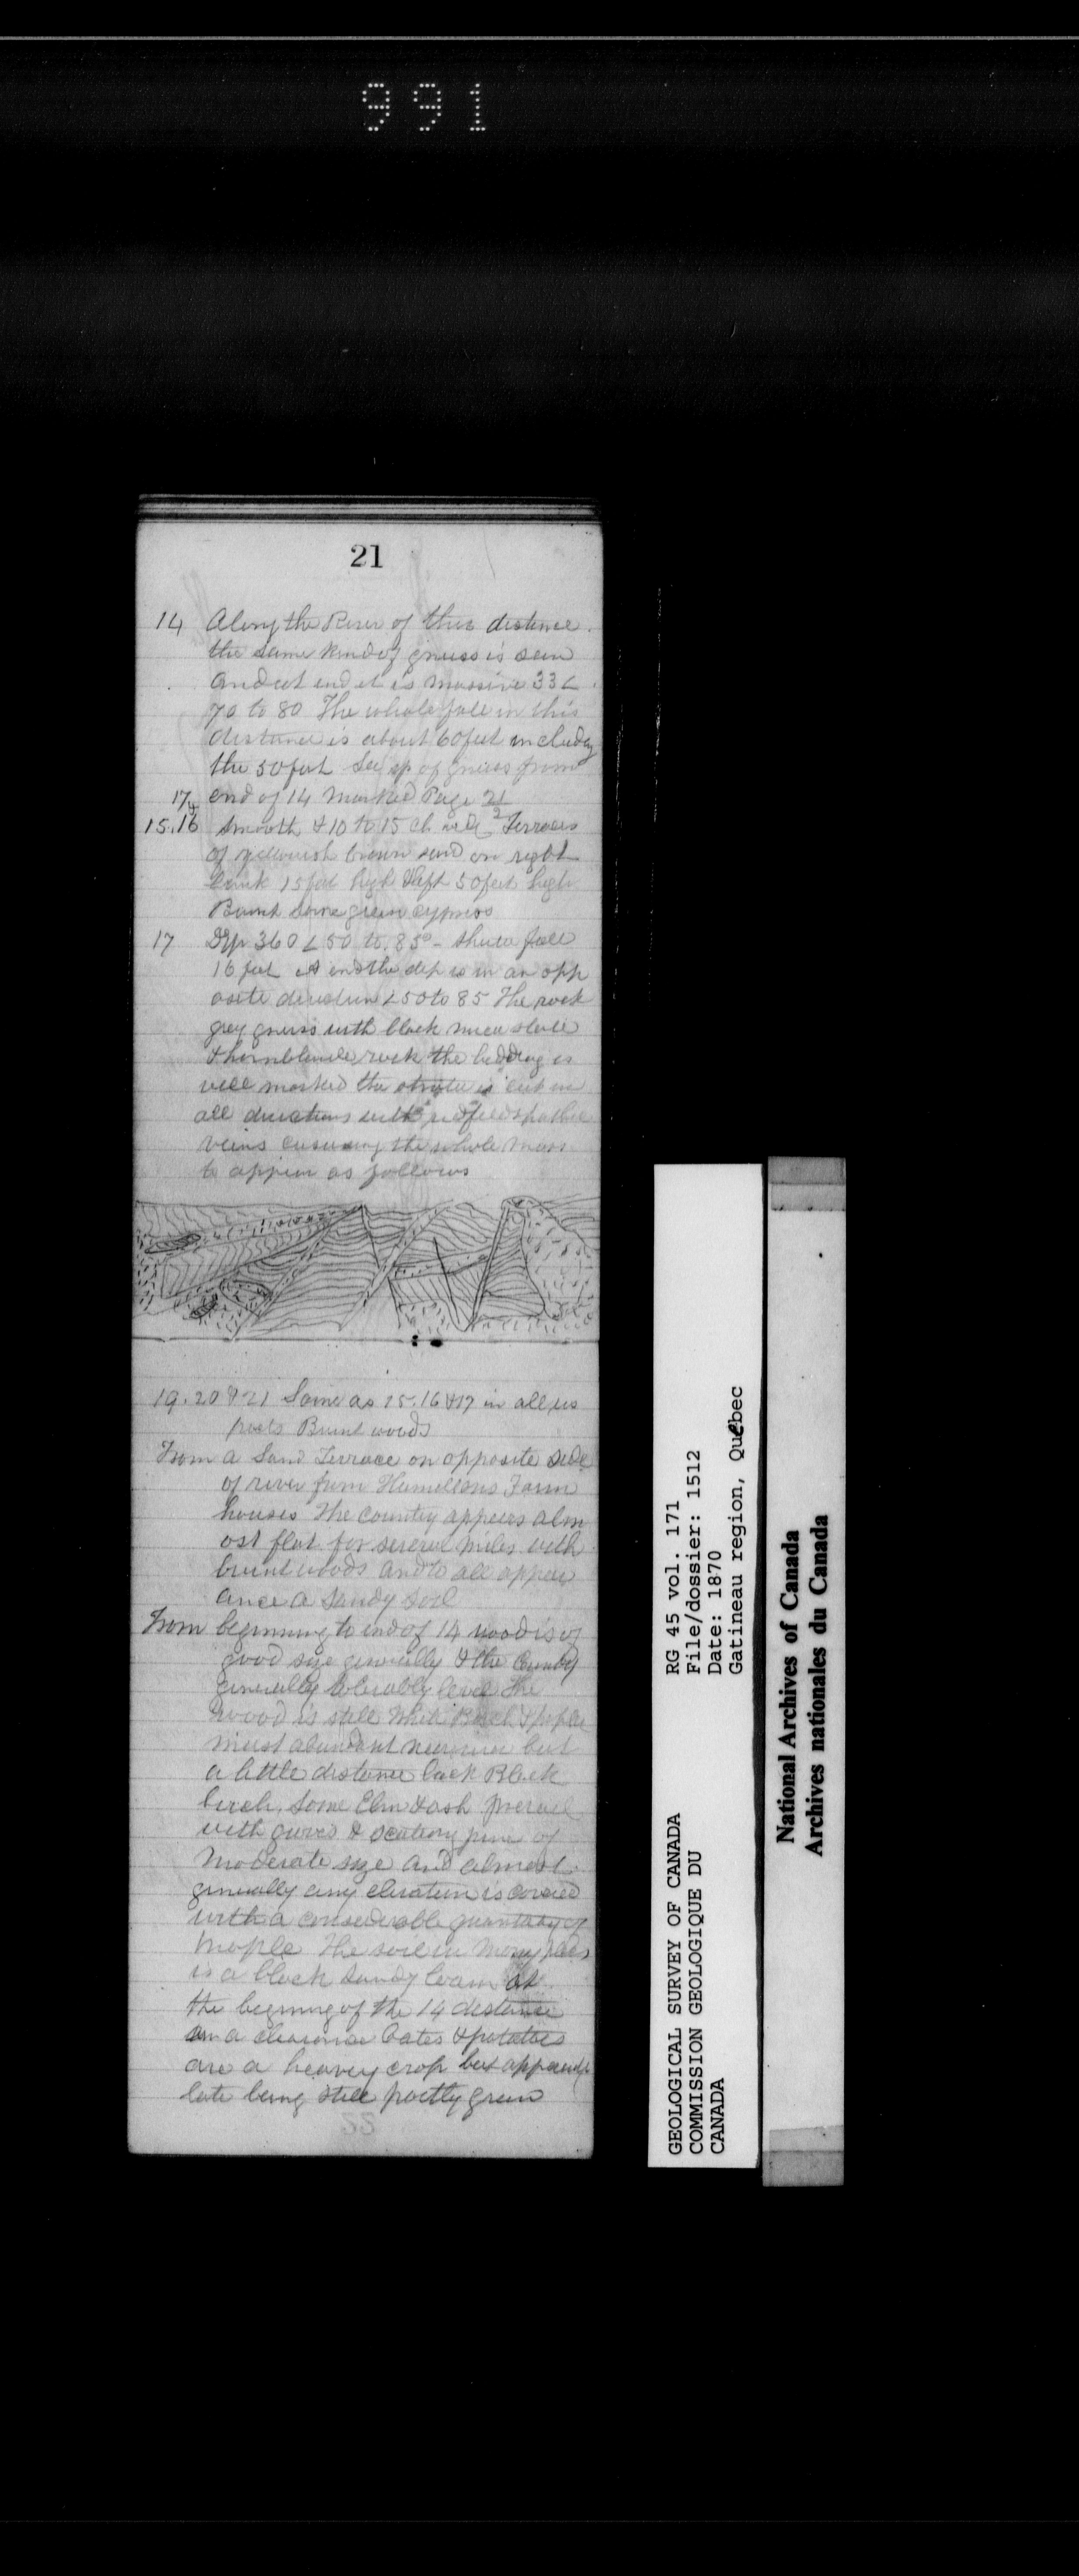 991
21
14 Along the River of this distance
the same kind of gneiss is seen
and at end it is massive 33 <
70 to 80 The whole fall in this
distance is about 60 feet includg
the 50 feet See sp of gneiss from
end of 14 Marked Page 21
17 &
15.16 Smooth & 10 to 15 ch wide 2 Terraces
of yellowish brown sand on right
bank 15 feet high & left 50 feet high
Burnt some green cypress
17 Dip 360 < 50 to 85° -
fall
16 feet At end the dip is in an opp
osite direction < 50 to 85 The rock
grey gneiss with black mica slate
& hornblende rock the bedding is
well marked the strata is cut in
all directions with red feldspathic
veins causing the whole mass
to appear as follows
19.20 & 21 Same as 15.16 & 17 in all res
pects Burnt woods
From a Sand Terrace on opposite side
of river from Hamiltons Farm
houses The country appears alm
ost flat for several miles with
burnt woods and to all appear
ance a Sandy Soil
From beginning to end of 14 wood is of
good size generally & the Country
generally tolerably level The
wood is still White Birch & poplar
most abundant near river but
a little distance back Black
birch, some Elm & ash prevail
with
& scattering pine of
Moderate size and almost
generally any elevation is covered
with a considerable quantity of
Maple The soil in Many places
is a black Sandy loam at
the beginning of the 14 distance
in a clearance Oates & potatoes
are a heavy crop but apparently
late being still partly green
22
GEOLOGICAL SURVEY OF CANADA
COMMISSION GEOLOGIQUE DU
CANADA
RG 45 vol. 171
File/dossier: 1512
Date: 1870
Gatineau region, Québec
National Archives of Canada
Archives nationales du Canada